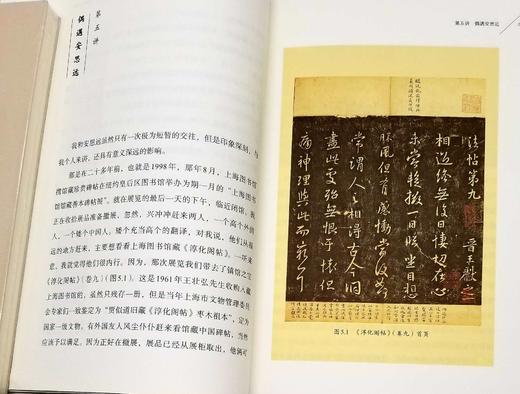 第五讲
偶遇安思远
我和安思远虽然只有一次极为短暂的交往，但是印象深刻，与
我个人来讲，还具有意义深远的影响。
那是在二十多年前，也就是1998年，那年8月，上海图书馆
携馆藏珍贵碑帖在纽约皇后区图书馆举办为期一月的“上海图书
馆馆藏善本碑帖展”。就在展览的最后一天的下午，临近闭馆，我
正在收拾展品准备撤展，忽然，兴冲冲赶来两人，一个高个外国
人，一个矮个中国人，矮个充当高个的翻译，对我说，他们从很
远的地方赶来，主要想看看上海图书馆藏《淳化阁帖》。一听来
意，我就觉得他们很内行。因为，那次展览我们带去了镇馆之宝
《淳化阁帖》（卷九）（图5.1）。这是1961年王壮弘先生收购入藏
上海图书馆的，虽然只残存一册，但是当年上海市文物管理委员
会专家们一致鉴定为“贾似道旧藏《淳化阁帖》枣木祖本”，定为
国家一级文物。有外国友人风尘仆仆赶来看馆藏中国碑帖，当然
应该予以满足。因为正好在撤展，展品已经从展柜取出，他俩可
第五讲 偶遇安思远
法帖第九 晋王献之
相过终无复日凄切在心
未尝暂掇一日临坐目想
胜风但有感恸当复如何
常谓人之相得古今洞
尽此处殆无恨于怀但
痛神理与此而穷耳
图5.1 《淳化阁帖》（卷九）首页